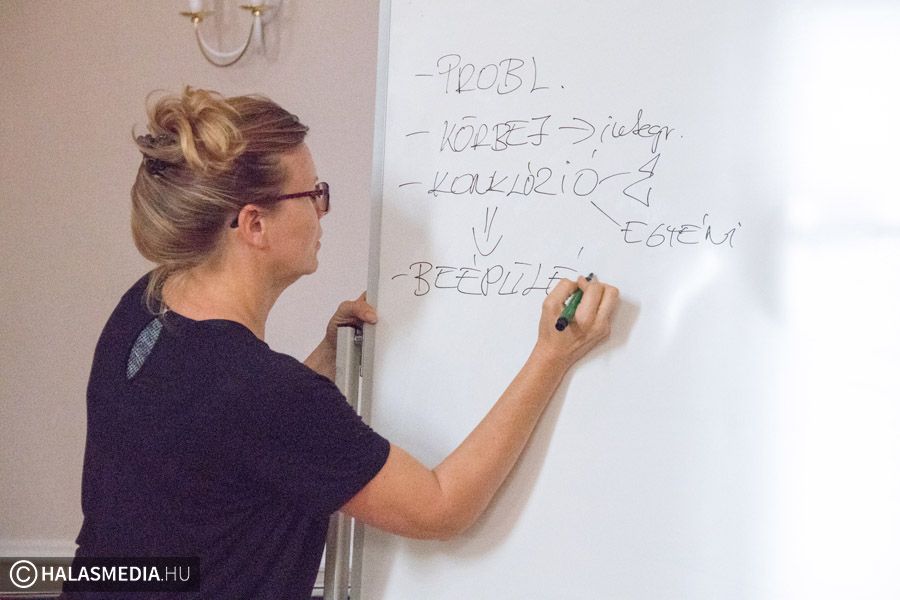 - PROBL.
- KÖRBEJ → integr.
- KONKLÚZIÓ
EGYÉNI
- BEÉPÜLÉ
© HALASMEDIA.HU